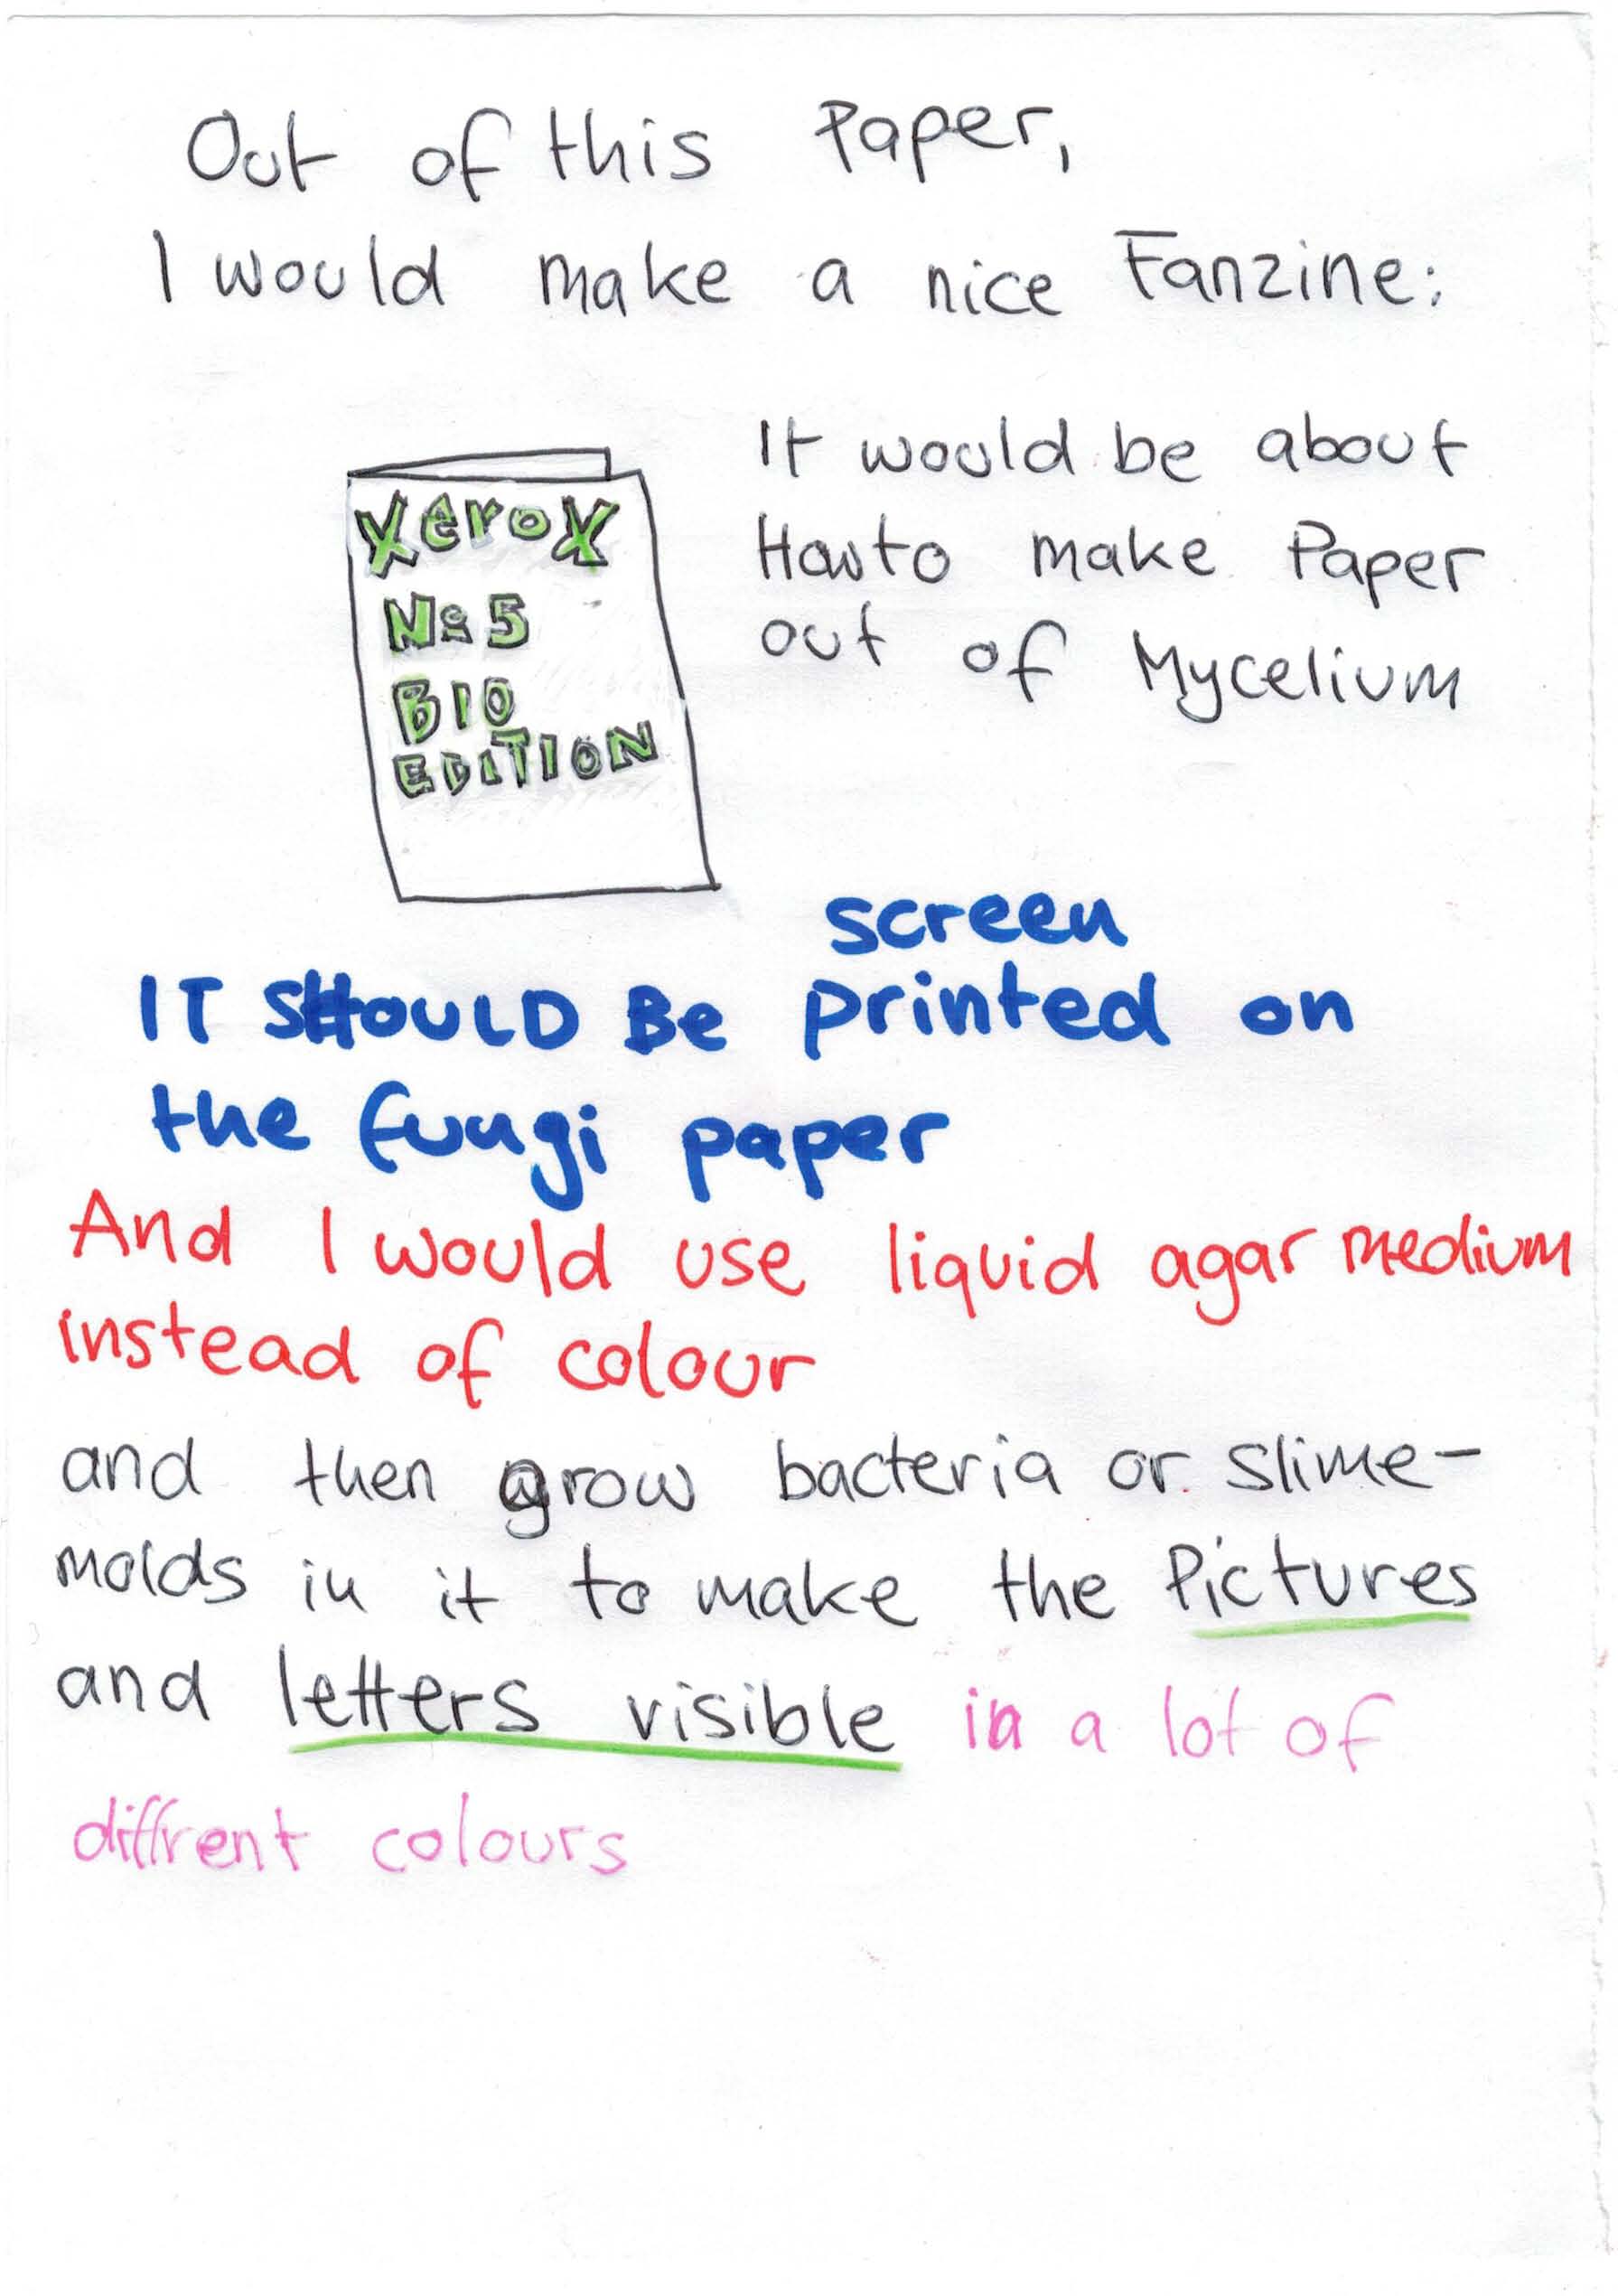 Out of this Paper,
I would make a nice Fanzine:
XeroX
No 5
BIO
EDITION
It would be about
Howto make Paper
out of Mycelium
screen
IT SHOULD Be printed on
the fungi paper
And I would use liquid agar medium
instead of colour
and then grow bacteria or slime-
molds in it to make the Pictures
and letters visible in a lot of
diffrent colours